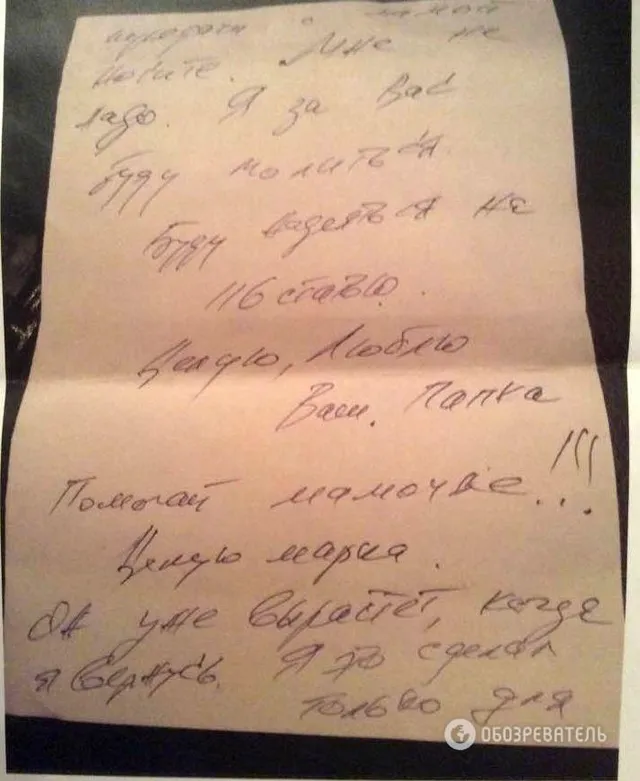 передачи с мамой
носите. Мне не
надо. Я за Вас
Буду молиться.
Буду надеяться на
116 статью.
Целую, Люблю
Ваш. Папка
Помогай мамочке!!!
Целую марка.
Он уже вырастет, когда
я вернусь. Я это сделал
только для
ОБОЗРЕВАТЕЛЬ